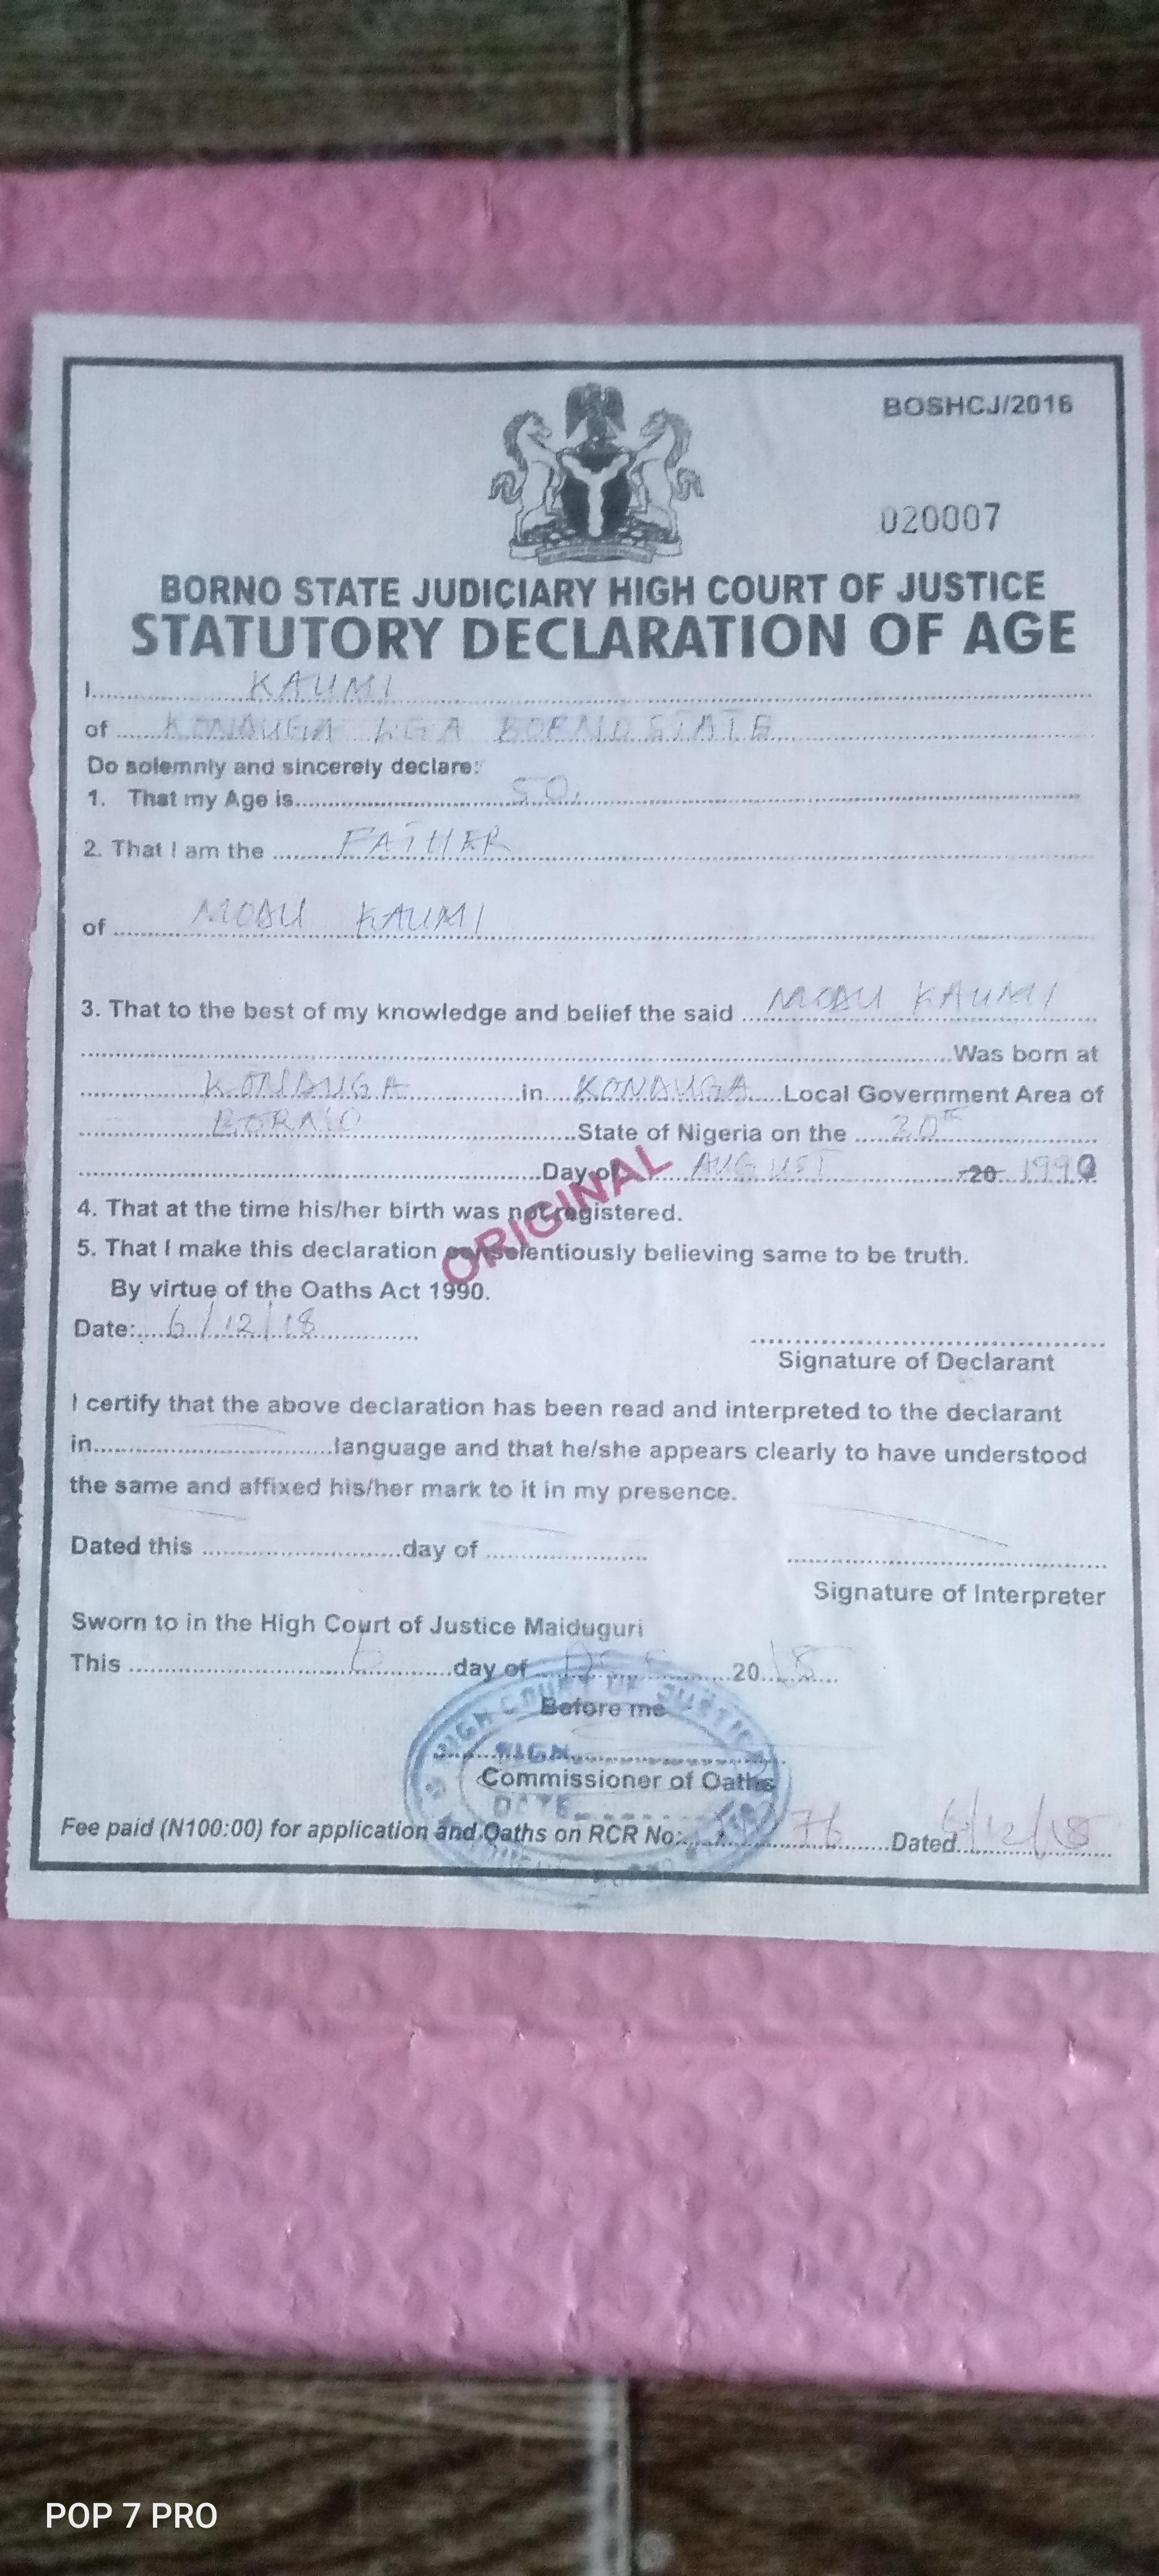 BOSHCJ/2016
020007
BORNO STATE JUDICIARY HIGH COURT OF JUSTICE
STATUTORY DECLARATION OF AGE
I..........KAUMI..........
of ......KONDUGA LGA BORNO STATE......
Do solemnly and sincerely declare:
1. That my Age is..........50..........
2. That I am the ..........FATHER..........
of ..........MODU KAUMI..........
3. That to the best of my knowledge and belief the said ....MODU KAUMI
..........Was born at
..........KONDUGA..........in....KONDUGA.....Local Government Area of
..........BORNO..........State of Nigeria on the .....
..........Day of.....AUGUST..........20...1990
ORIGINAL
4. That at the time his/her birth was not registered.
5. That I make this declaration conscientiously believing same to be truth.
By virtue of the Oaths Act 1990.
Date:....6/12/18..........
Signature of Declarant
I certify that the above declaration has been read and interpreted to the declarant
in..........language and that he/she appears clearly to have understood
the same and affixed his/her mark to it in my presence.
Dated this ..........day of ..........
Signature of Interpreter
Sworn to in the High Court of Justice Maiduguri
This ..........6..........day of ..........20...18.....
Before me
HIGH COURT OF JUSTICE
SIGN..........
Commissioner of Oaths
DATE
Fee paid (N100:00) for application and Oaths on RCR No:..........76..........Dated..6/12/18..
POP 7 PRO